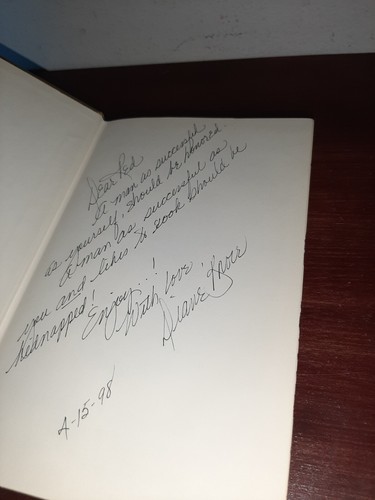 Dear Red
A man as successful
as yourself, should be honored.
A man as successful as
you and likes to cook should be
Kidnapped!
Enjoy...!
With love,
Diane
4-15-98